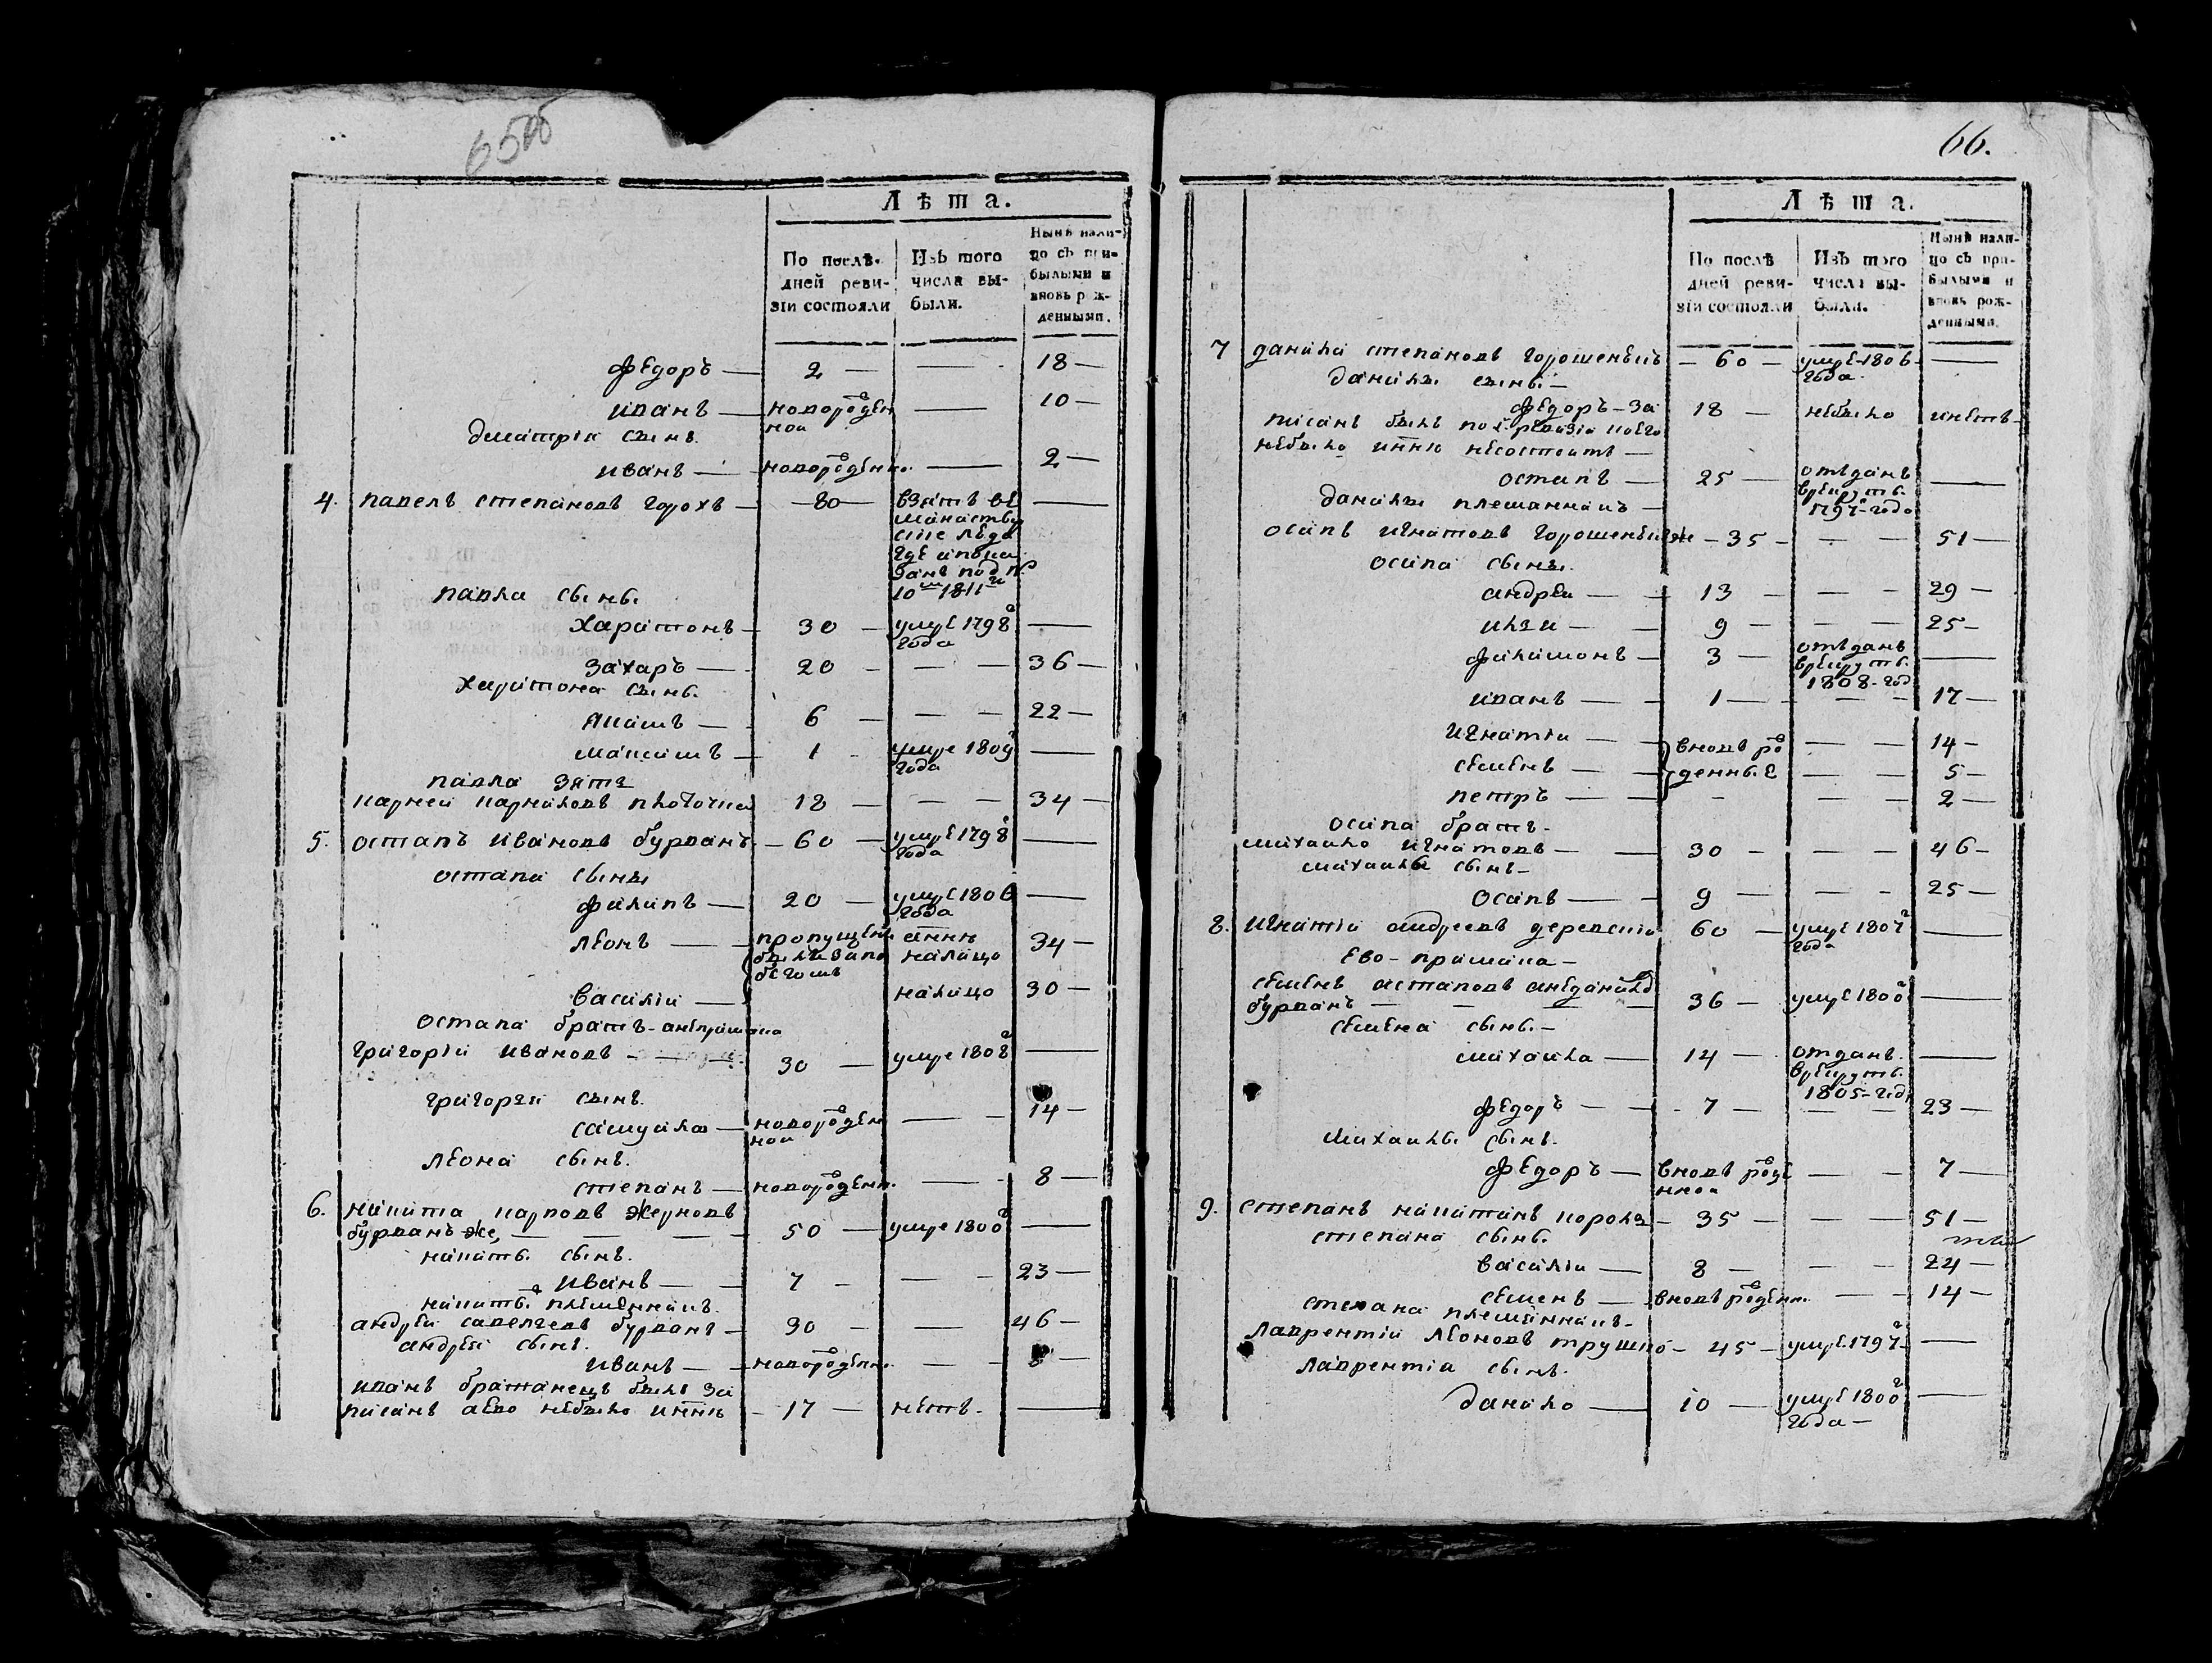 65об
Лѣта.
По послѣдней ревизіи состояли
Изъ того числа выбыли.
Нынѣ налицо съ прибылыми и вновь рожденными.
федоръ — 2 — — 18 —
иванъ — новорожден ной — 10 —
дмитрія сынъ.
иванъ — новорожденн. — 2 —
4. павелъ степановъ горохъ — 80 — взятъ въ —
павла сынъ.
харитонъ — 30 — умре 1798 года —
захаръ — 20 — — 36 —
харитона сынъ.
6 — — 22 —
максимъ — 1 - умре 1809 года —
павла зять
12 — — 34 —
5. остапъ ивановъ бурванъ — 60 — умре 1798 года —
остапа сыны
филипъ — 20 — умре 1806 года —
леонъ — пропущены были за побегомъ аннѣ налицо 34 —
василіи — налицо 30 —
остапа братъ
григоріи ивановъ — 30 — умре 1808 —
григорія сынъ.
самуила — новорожден ной — 14 —
леона сынъ.
степанъ — новорожденн. — 8 —
6. никита карповъ жерновъ
бурванъ же, — 50 — умре 1800 —
никиты сынъ.
иванъ — 7 — — 23 —
никиты племенникъ.
андреи савельевъ бурванъ — 30 — — 46 —
андрея сынъ.
иванъ — новорожденн. — 8 —
иванъ братанецъ былъ за
писанъ аево небыло иннѣ — 17 — нетъ. —
66.
Лѣта.
По послѣдней ревизіи состояли
Изъ того числа выбыли.
Нынѣ налицо съ прибылыми и вновь рожденными.
7 данила степановъ — 60 — умре 1806 года —
данилы сынъ —
федоръ — за 18 — небыло инетъ —
писанъ былъ по ревизіи коего
небыло иннѣ несостоитъ —
остапъ — 25 — отъданъ врекруты. 1797 года —
данилы племанникъ —
осипъ игнатовъ — 35 — — 51 —
осипа сыны.
андреи — 13 — — 29 —
илзи — 9 — — 25 —
филимонъ — 3 — отъданъ врекруты. 1808 год —
иванъ — 1 — — 17 —
игнатіи — вновь ро — 14 —
семенъ — денные — 5 —
петръ — — 2 —
осипа братъ —
михаило игнатовъ — 30 — — 46 —
михаилы сынъ —
осипъ — 9 — — 25 —
8. игнатіи андреевъ — 60 — умре 1807 года —
ево — примака —
семенъ астаповъ
бурванъ — 36 — умре 1800 —
семена сынъ —
михаила — 14 — отданъ. врекруты. 1805 года —
федоръ — 7 — — 23 —
михаилы сынъ.
федоръ — вновь рожденной — 7 —
9. степанъ никитинъ король — 35 — — 51 —
степана сынъ.
василіи — 8 — — 24 —
семенъ — вновь рожденн. — 14 —
степана племянникъ —
лаврентіи леоновъ — 45 — умре 1797 —
лаврентіа сынъ.
данило — 10 — умре 1800 года —